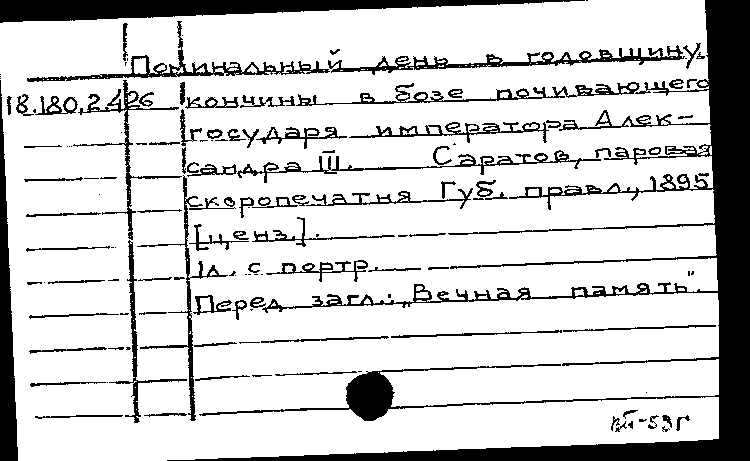 Поминальный день в годовщину
18.180.2.426 кончины в бозе почивающего
государя императора Алек-
сандра III. Саратов, паровая
скоропечатня Губ. правл., 1895
[ценз.].
1л. с портр.
Перед загл.: „Вечная память".